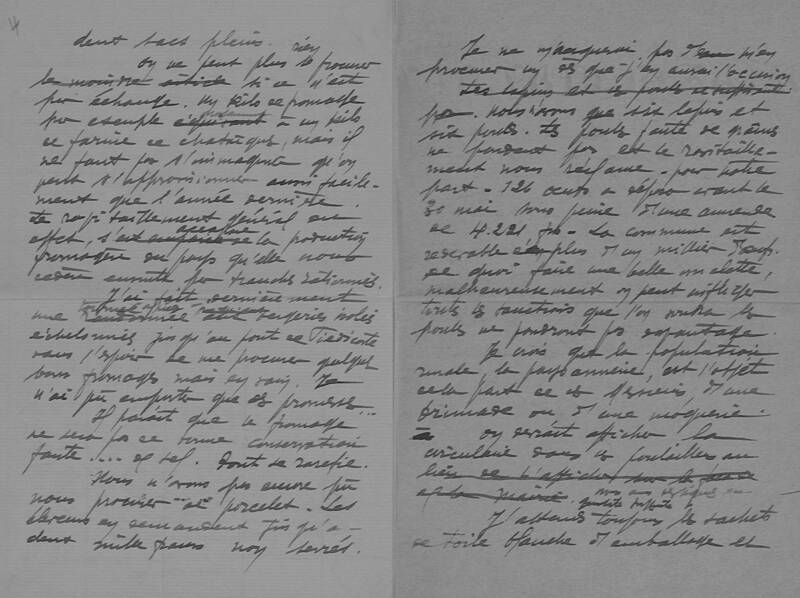 4
dent sacs pleins.
rien
on ne peut plus se procurer
le moindre article si ce n'est
par échange. un kilo de fromage
par exemple à un kilo
de farine de chataigne, mais il
ne faut pas s'imaginer qu'on
peut s'approvisionner aussi facile-
ment que l'année dernière.
Le ravitaillement général en
effet, s'est de la production
fromagère du pays qu'elle nous
cédera ensuite par tranches rationnées.
J'ai fait dernièrement
une bergeries
échelonnées jusqu'au fond de
dans l'espoir de me procurer quelques
bons fromages mais en vain. Je
n'ai pu emporter que des promesses...
Il paraît que le fromage
ne sera pas de bonne conservation
faute .... de sel. dont se raréfie.
Nous n'avons pas encore pu
nous procurer de porcelet. Les
éleveurs en demandent jusqu'à
deux mille francs non sevrés.
Je ne manquerai pas d'en
procurer un dès que j'en aurai l'occasion
Les lapins et les poules
Nous n'avons que six lapins et
six poules. Les poules faute de graines
ne pondent pas et le ravitaille-
ment nous réclame pour notre
part - 126 oeufs à déposer avant le
30 mai sous peine d'une amende
de 4.221 frs. La commune est
redevable de plus d'un millier d'oeufs.
de quoi faire une belle omelette,
malheureusement on peut infliger
toutes les sanctions que l'on voudra les
poules ne pondront pas davantage.
Je crois que la population
rurale, la paysannerie, est l'objet
de la part de ces Messieurs, d'une
brimade ou d'une moquerie.
on devrait afficher la
circulaire dans les poulaillers au
lieu de l'afficher sur la
de la mairie.
J'attends toujours les sachets
de toile blanche d'emballage et